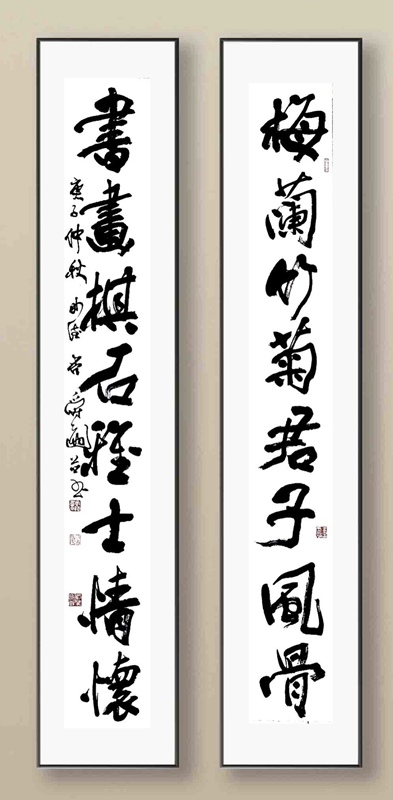 梅蘭竹菊君子風骨
書畫棋石雅士情懷
庚子仲秋